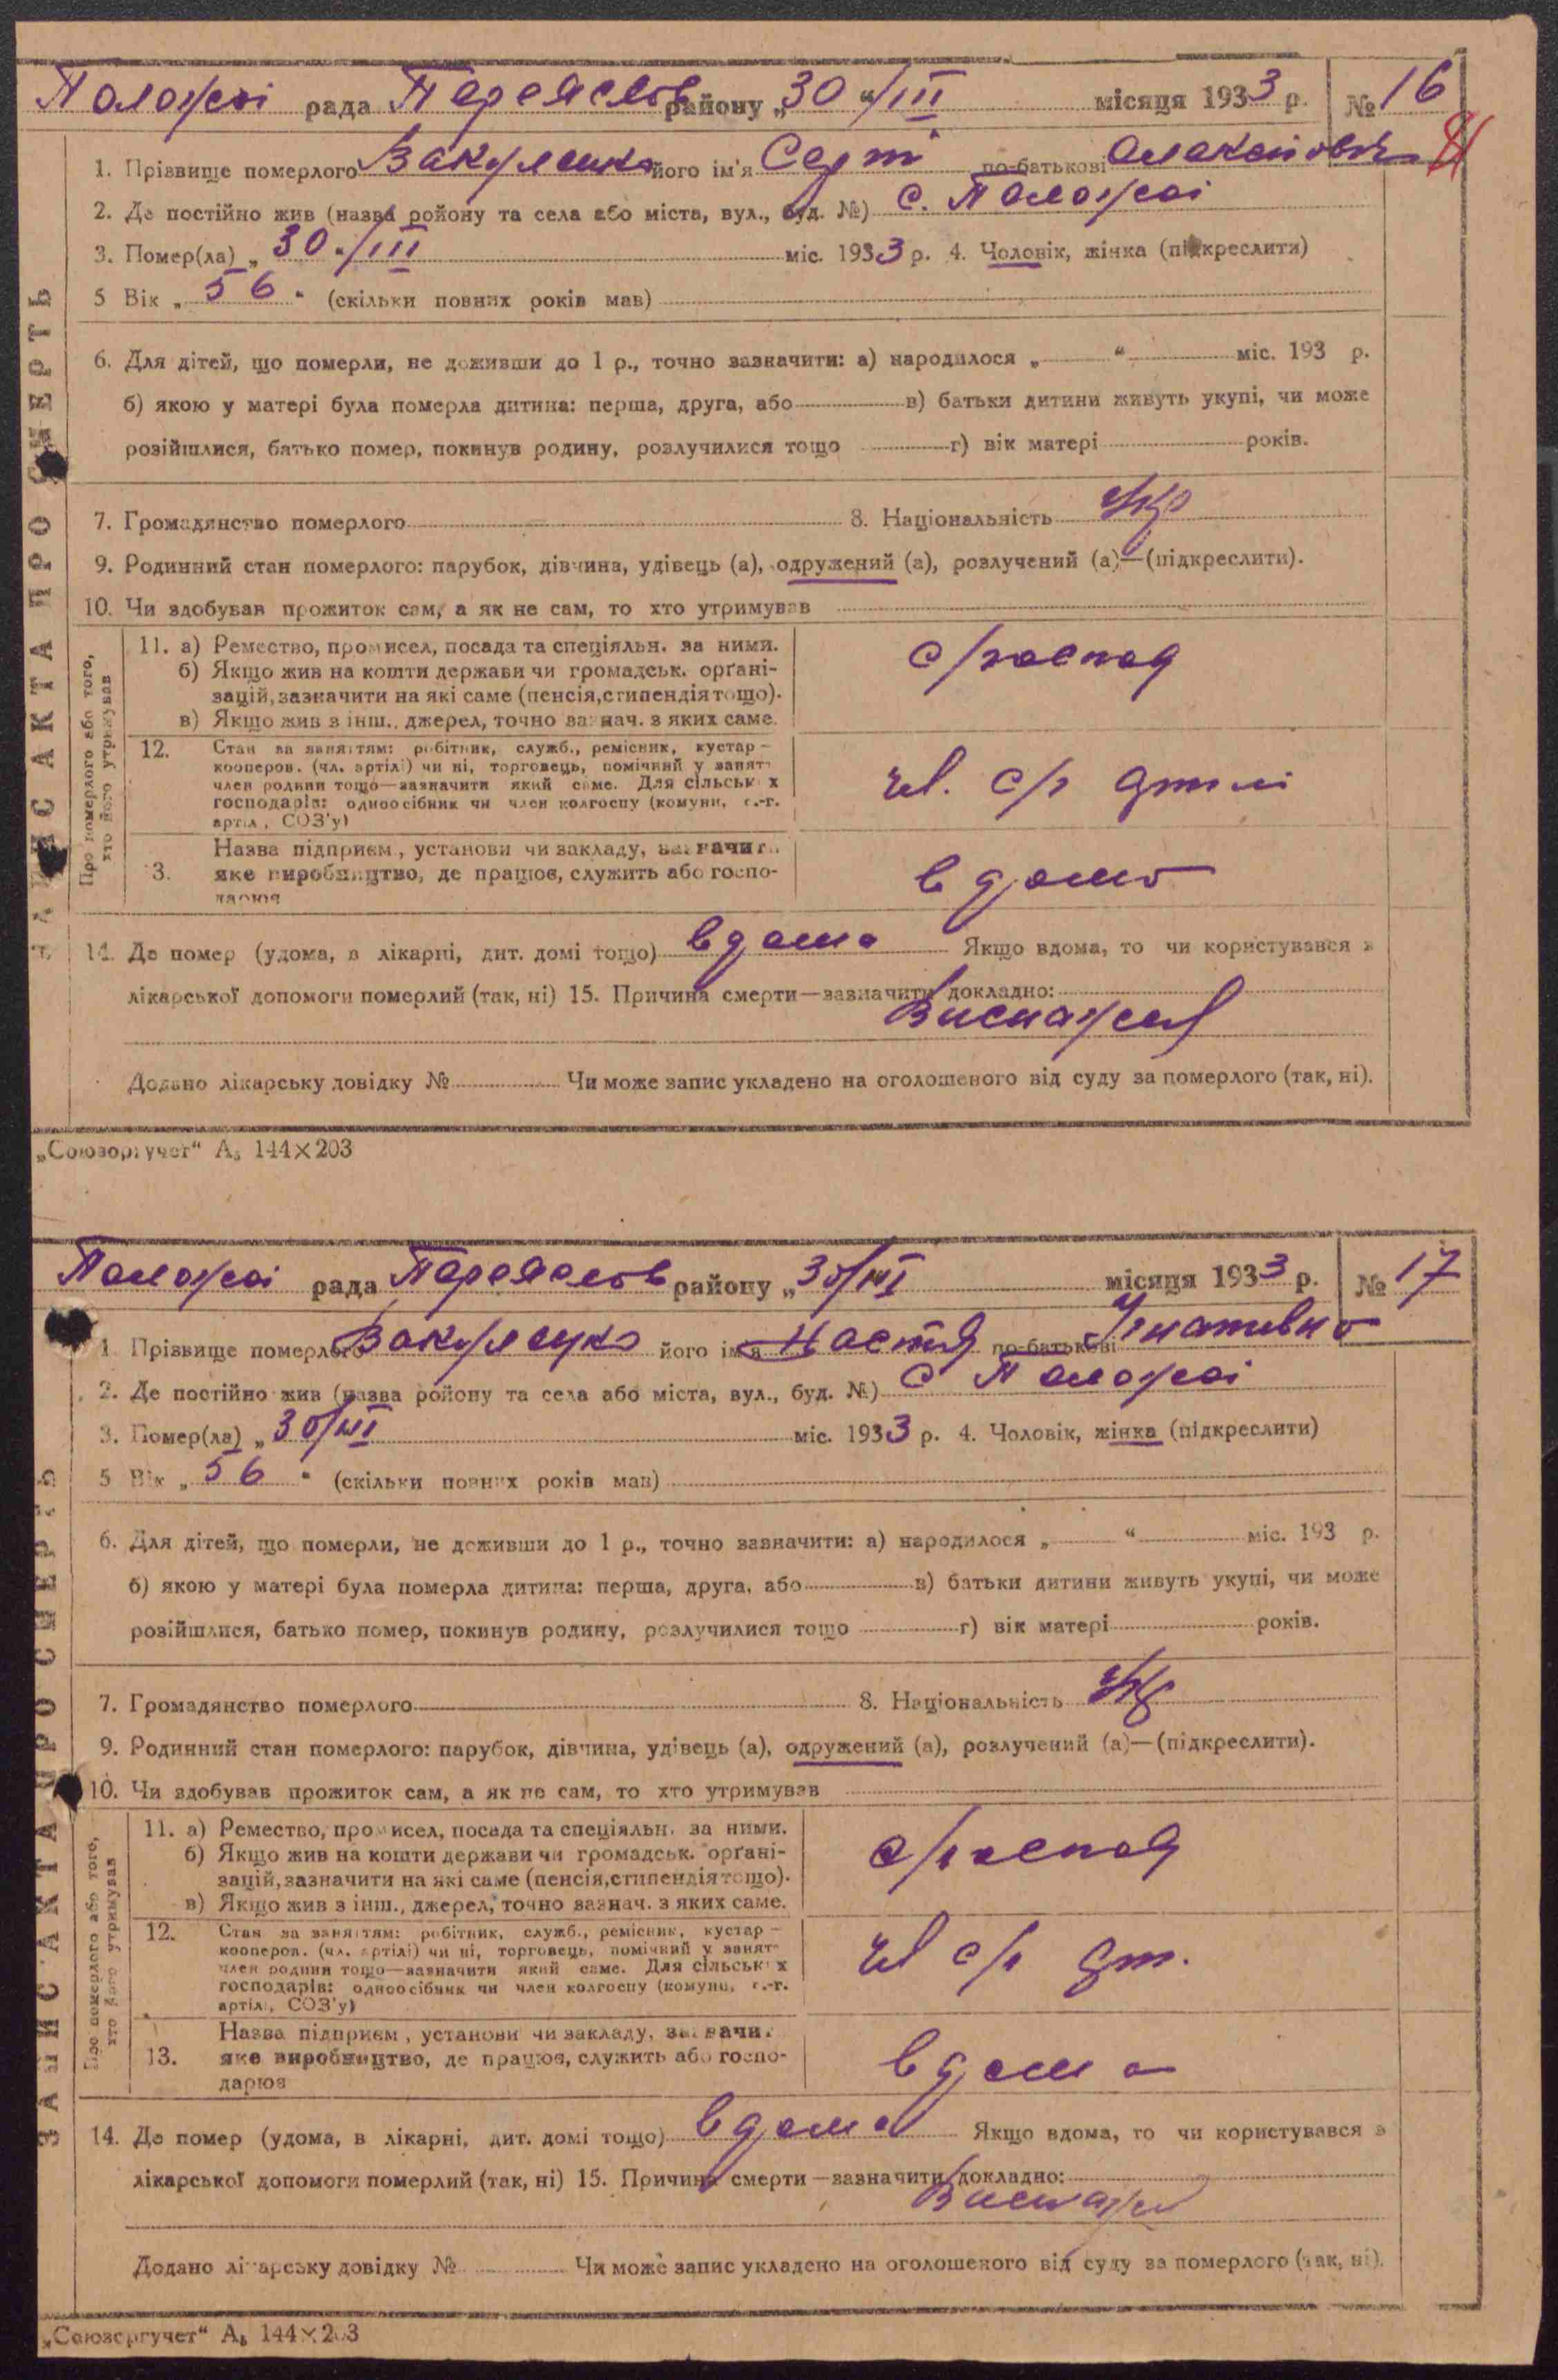 Положаї рада Переяслов району „30 "/III місяця 1933 р. № 16
1. Прізвище померлого Вакуленко його ім'я по-батькові
2. Де постійно жив (назва ройону та села або міста, вул., буд. №) С. Положаї
3. Помер(ла) „ 30 "/III міс. 1933 р. 4. Чоловік, жінка (підкреслити)
5 Вік „ 56 " (скільки повних років мав)
6. Для дітей, що померли, не доживши до 1 р., точно зазначити: а) народилося „ “ міс. 193 р.
б) якою у матері була померла дитина: перша, друга, або в) батьки дитини живуть укупі, чи може
розійшлися, батько помер, покинув родину, розлучилися тощо г) вік матері років.
7. Громадянство померлого 8. Національність Укр
9. Родинний стан померлого: парубок, дівчина, удівець (а), одружений (а), розлучений (а)—(підкреслити).
10. Чи здобував прожиток сам, а як не сам, то хто утримував
ЗАПИС АКТА ПРО СМЕРТЬ
Про померлого або того,
хто його утримував
11. а) Ремество, промисел, посада та спеціяльн. за ними.
б) Якщо жив на кошти держави чи громадськ. орґані-
зацій, зазначити на які саме (пенсія, стипендія тощо).
в) Якщо жив з інш., джерел, точно зазнач. з яких саме.
с/господ
12. Стан за заняттям: робітник, служб., ремісник, кустар –
кооперов. (чл. артілі) чи ні, торговець, помічний у занят-
член родини тощо—зазначити який саме. Для сільськ х
господарів: одноосібник чи член колгоспу (комуни, с.-г.
артіл, СОЗ'у)
чл. с/г артілі
Назва підприєм , установи чи закладу, зазначити
13. яке виробництво, де працює, служить або госпо-
дарює
вдома
14. Де помер (удома, в лікарні, дит. домі тощо) вдома Якщо вдома, то чи користувався з
лікарської допомоги померлий (так, ні) 15. Причина смерти—зазначити докладно:
Виснажен
Додано лікарську довідку № Чи може запис укладено на оголошеного від суду за померлого (так, ні).
„Союзоргучет“ А₅ 144×203
Положаї рада Переяслов району „30/III місяця 1933 р. № 17
1 Прізвище померлого Вакуленко його ім'я Настя по-батькові Ігнативна
2. Де постійно жив (назва ройону та села або міста, вул., буд. №) С Положаї
3. Помер(ла) „ 30/III міс. 1933 р. 4. Чоловік, жінка (підкреслити)
5 Вік „ 56 " (скільки повних років мав)
6. Для дітей, що померли, не доживши до 1 р., точно зазначити: а) народилося „ “ міс. 193 р.
б) якою у матері була померла дитина: перша, друга, або в) батьки дитини живуть укупі, чи може
розійшлися, батько помер, покинув родину, розлучилися тощо г) вік матері років.
7. Громадянство померлого 8. Національність Укр
9. Родинний стан померлого: парубок, дівчина, удівець (а), одружений (а), розлучений (а)—(підкреслити).
10. Чи здобував прожиток сам, а як не сам, то хто утримував
ЗАПИС АКТА ПРО СМЕРТЬ
Про померлого або того,
хто його утримував
11. а) Ремество, промисел, посада та спеціяльн. за ними.
б) Якщо жив на кошти держави чи громадськ. орґані-
зацій, зазначити на які саме (пенсія, стипендія тощо).
в) Якщо жив з інш., джерел, точно зазнач. з яких саме.
с/господ
12. Стан за заняттям: робітник, служб., ремісник, кустар –
кооперов. (чл. артілі) чи ні, торговець, помічний у занят-
член родини тощо—зазначити який саме. Для сільськ х
господарів: одноосібник чи член колгоспу (комуни, с.-г.
артіл , СОЗ'у)
чл с/г арт.
Назва підприєм , установи чи закладу, зазначи
13. яке виробництво, де працює, служить або госпо-
дарює
вдома
14. Де помер (удома, в лікарні, дит. домі тощо) вдома Якщо вдома, то чи користувався з
лікарської допомоги померлий (так, ні) 15. Причина смерти—зазначити докладно:
Виснажен
Додано лікарську довідку № Чи може запис укладено на оголошеного від суду за померлого (так, ні).
„Союзоргучет“ А₅ 144×203